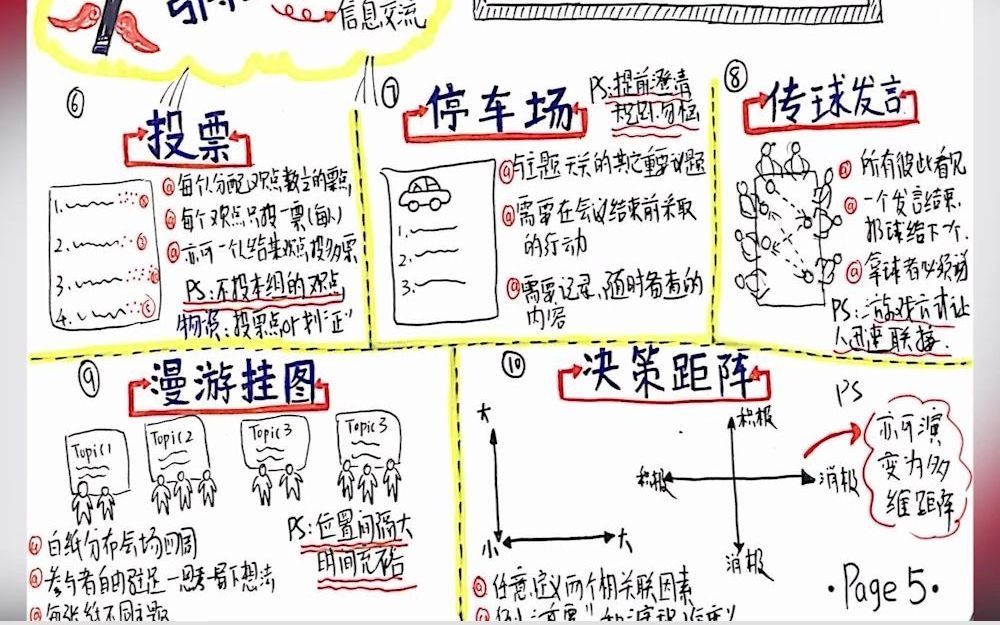 信息交流
⑥
投票
1.
2.
3.
4.
@每个人分配观点数立的票点
@每个观点只投一票(每人)
@亦可一人给某观点投多票
PS:不投本组的观点
物资:投票点or划"正"
⑦
停车场
PS:提前澄清
规则
1.
2.
3.
@与主题无关的其它重要议题
@需要在会议结束前采取
的行动
@需要记录,随时备查的
内容
⑧
传球发言
@所有彼此看见
@一个发言结束,
扔球给下个.
@拿球者必须说
PS:游戏方式让
人迅速联接.
⑨
漫游挂图
Topic1
Topic2
Topic3
Topic3
PS:位置间隔大
时间充裕
@白纸分布会场四周
@参与者自由驻足—思考—留下想法
@每张纸不同主题
⑩
决策矩阵
大
小
大
积极
积极
消极
消极
PS
亦可演
变为多
维矩阵
@任意定义两个相关联因素
·Page 5·